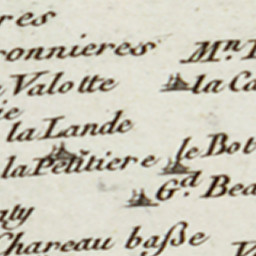 res
ronnieres M.n
Valotte la Ca
ie
la Lande
la Petitiere le Bot
G.d Bea
aty
Chareau baſse